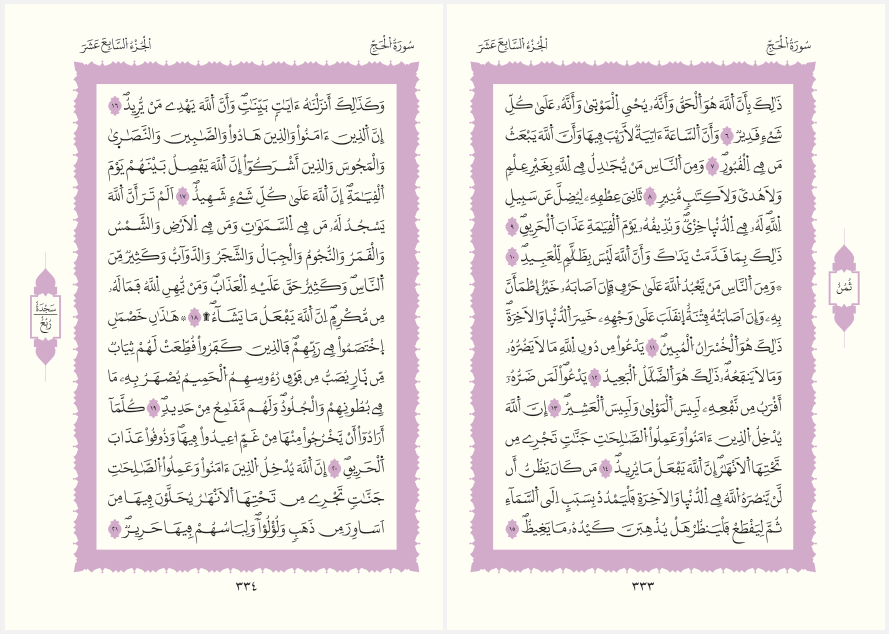 سُورَةُ الْحَجِّ
الْجُزْءُ السَّابِعَ عَشَرَ
ذَٰلِكَ بِأَنَّ اَ۬للَّهَ هُوَ اَ۬لْحَقُّ وَأَنَّهُۥ يُحْيِ اِ۬لْمَوْت۪يٰ وَأَنَّهُۥ عَلَىٰ كُلِّ
شَےْءٖ قَدِيرٞ ٦ وَأَنَّ اَ۬لسَّاعَةَ ءَاتِيَةٞ لَّا رَيْبَ فِيهَا وَأَنَّ اَ۬للَّهَ يَبْعَثُ
مَن فِے اِ۬لْقُبُورِۖ ٧ وَمِنَ اَ۬لنَّاسِ مَنْ يُّجَٰدِلُ فِے اِ۬للَّهِ بِغَيْرِ عِلْمٖ
وَلَا هُديٗ وَلَا كِتَٰبٖ مُّنِيرٖ ٨ ثَانِيَ عِطْفِهِۦ لِيُضِلَّ عَن سَبِيلِ
اِ۬للَّهِۖ لَهُۥ فِے اِ۬لدُّنْي۪ا خِزْيٞۖ وَنُذِيقُهُۥ يَوْمَ اَ۬لْقِيَٰمَةِ عَذَابَ اَ۬لْحَرِيقِۖ ٩
ذَٰلِكَ بِمَا قَدَّمَتْ يَدَٰكَ وَأَنَّ اَ۬للَّهَ لَيْسَ بِظَلَّٰمٖ لِّلْعَبِيدِۖ ١٠
۞وَمِنَ اَ۬لنَّاسِ مَنْ يَّعْبُدُ اُ۬للَّهَ عَلَىٰ حَرْفٖ فَإِنَ اَصَابَهُۥ خَيْرٌ اِ۪طْمَأَنَّ
بِهِۦ وَإِنَ اَصَابَتْهُ فِتْنَةٌ اِ۪نقَلَبَ عَلَىٰ وَجْهِهِۦ خَسِرَ اَ۬لدُّنْي۪ا وَالَاخِرَةَۖ
ذَٰلِكَ هُوَ اَ۬لْخُسْرَٰنُ اُ۬لْمُبِينُۖ ١١ يَدْعُواْ مِن دُونِ اِ۬للَّهِ مَا لَا يَضُرُّهُۥ
وَمَا لَا يَنفَعُهُۥۖ ذَٰلِكَ هُوَ اَ۬لضَّلَٰلُ اُ۬لْبَعِيدُۖ ١٢ يَدْعُواْ لَمَن ضَرُّهُۥ
أَقْرَبُ مِن نَّفْعِهِۦ لَبِيسَ اَ۬لْمَوْل۪يٰ وَلَبِيسَ اَ۬لْعَشِيرُۖ ١٣ إِنَّ اَ۬للَّهَ
يُدْخِلُ اُ۬لذِينَ ءَامَنُواْ وَعَمِلُواْ اُ۬لصَّٰلِحَٰتِ جَنَّٰتٖ تَجْرِے مِن
تَحْتِهَا اَ۬لَانْهَٰرُۖ إِنَّ اَ۬للَّهَ يَفْعَلُ مَا يُرِيدُۖ ١٤ مَن كَانَ يَظُنُّ أَن
لَّنْ يَّنصُرَهُ اُ۬للَّهُ فِے اِ۬لدُّنْي۪ا وَالَاخِرَةِ فَلْيَمْدُدْ بِسَبَبٍ اِلَى اَ۬لسَّمَآءِ
ثُمَّ لِيَقْطَعْ فَلْيَنظُرْ هَلْ يُذْهِبَنَّ كَيْدُهُۥ مَا يَغِيظُۖ ١٥
ثُمُنُ
٣٣٣
سُورَةُ الْحَجِّ
الْجُزْءُ السَّابِعَ عَشَرَ
وَكَذَٰلِكَ أَنزَلْنَٰهُ ءَايَٰتِۢ بَيِّنَٰتٖۖ وَأَنَّ اَ۬للَّهَ يَهْدِے مَنْ يُّرِيدُۖ ١٦
إِنَّ اَ۬لذِينَ ءَامَنُواْ وَالذِينَ هَادُواْ وَالصَّٰبِينَ وَالنَّصَٰر۪يٰ
وَالْمَجُوسَ وَالذِينَ أَشْرَكُوٓاْ إِنَّ اَ۬للَّهَ يَفْصِلُ بَيْنَهُمْ يَوْمَ
اَ۬لْقِيَٰمَةِۖ إِنَّ اَ۬للَّهَ عَلَىٰ كُلِّ شَےْءٖ شَهِيدٌۖ ١٧ اَلَمْ تَرَ أَنَّ اَ۬للَّهَ
يَسْجُدُ لَهُۥ مَن فِے اِ۬لسَّمَٰوَٰتِ وَمَن فِے اِ۬لَارْضِ وَالشَّمْسُ
وَالْقَمَرُ وَالنُّجُومُ وَالْجِبَالُ وَالشَّجَرُ وَالدَّوَآبُّ وَكَثِيرٞ مِّنَ
اَ۬لنَّاسِۖ وَكَثِيرٌ حَقَّ عَلَيْهِ اِ۬لْعَذَابُۖ وَمَنْ يُّهِنِ اِ۬للَّهُ فَمَا لَهُۥ
مِن مُّكْرِمٍۖ اِنَّ اَ۬للَّهَ يَفْعَلُ مَا يَشَآءُۖ ۩ ١٨ ۞هَٰذَٰنِ خَصْمَٰنِ
اِ۪خْتَصَمُواْ فِے رَبِّهِمْۖ فَالذِينَ كَفَرُواْ قُطِّعَتْ لَهُمْ ثِيَابٞ
مِّن نّ۪ارٖ يُصَبُّ مِن فَوْقِ رُءُوسِهِمُ اُ۬لْحَمِيمُ يُصْهَرُ بِهِۦ مَا
فِے بُطُونِهِمْ وَالْجُلُودُۖ وَلَهُم مَّقَٰمِعُ مِنْ حَدِيدٖۖ ١٩ كُلَّمَآ
أَرَادُوٓاْ أَنْ يَّخْرُجُواْ مِنْهَا مِنْ غَمٍّ ا۟عِيدُواْ فِيهَاۖ وَذُوقُواْ عَذَابَ
اَ۬لْحَرِيقِۖ ٢٠ إِنَّ اَ۬للَّهَ يُدْخِلُ اُ۬لذِينَ ءَامَنُواْ وَعَمِلُواْ اُ۬لصَّٰلِحَٰتِ
جَنَّٰتٖ تَجْرِے مِن تَحْتِهَا اَ۬لَانْهَٰرُ يُحَلَّوْنَ فِيهَا مِنَ
اَسَاوِرَ مِن ذَهَبٖ وَلُؤْلُؤاٗۖ وَلِبَاسُهُمْ فِيهَا حَرِيرٞۖ ٢١
سَجْدَةُ
رُبُعُ
٣٣٤